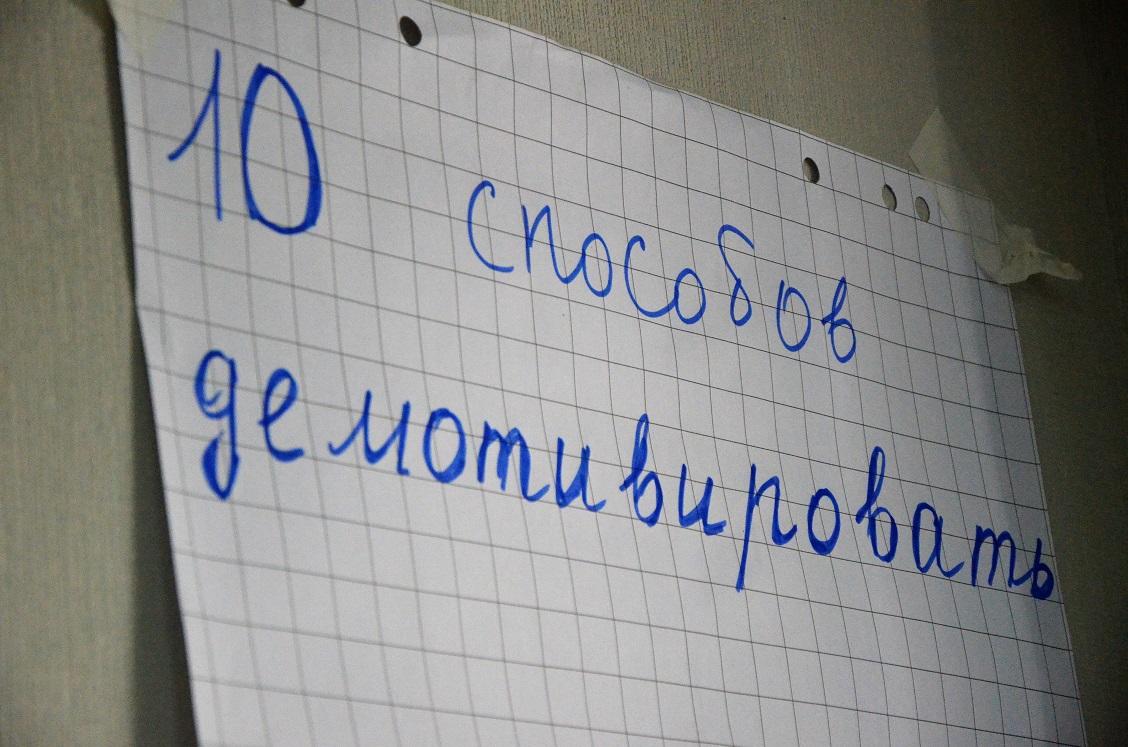 10 способов
демотивировать